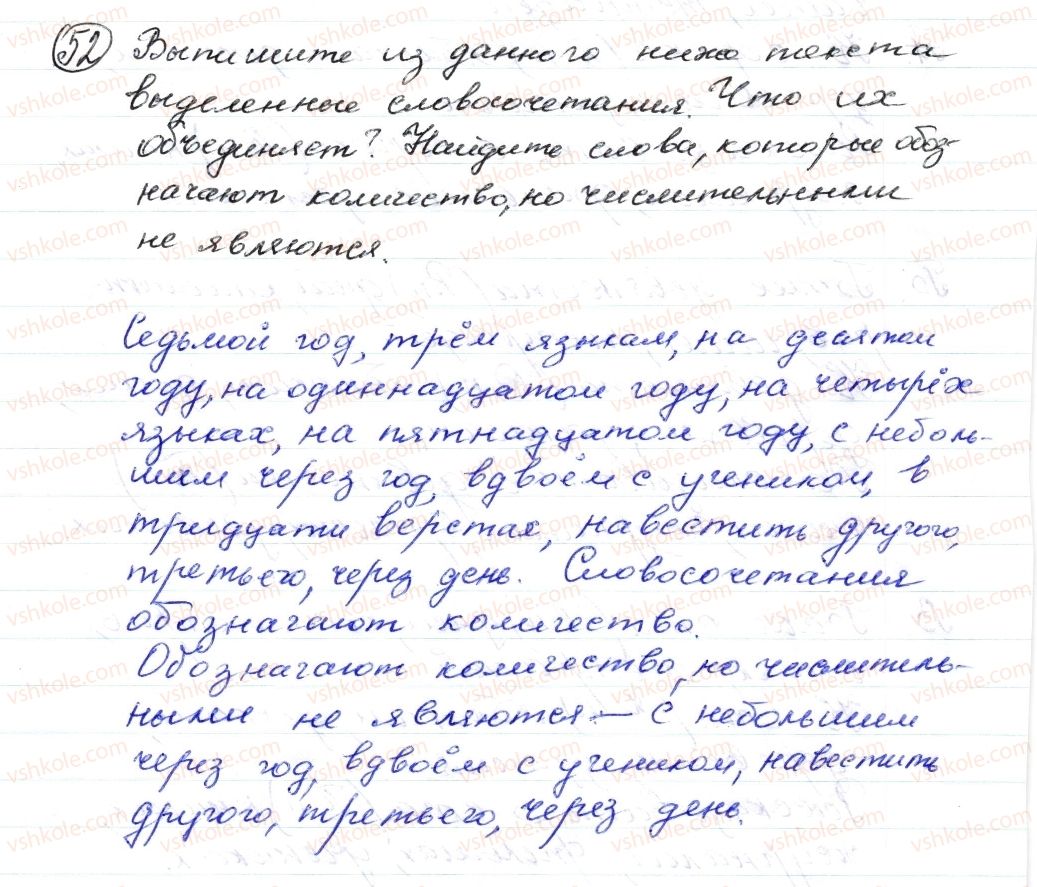 52 Выпишите из данного ниже текста
выделенные словосочетания. Что их
объединяет? Найдите слова, которые обоз-
начают количество, но числительными
не являются.
Седьмой год, трём языкам, на десятом
году, на одиннадцатом году, на четырёх
языках, на пятнадцатом году, с неболь-
шим через год, вдвоём с учеником, в
тридцати верстах, навестить другого,
третьего, через день. Словосочетания
обозначают количество.
Обозначают количество, но числитель-
ными не являются – с небольшим
через год, вдвоём с учеником, навестить
другого, третьего, через день.